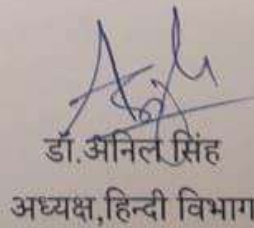 डॉ.अनिल सिंह
अध्यक्ष,हिन्दी विभाग